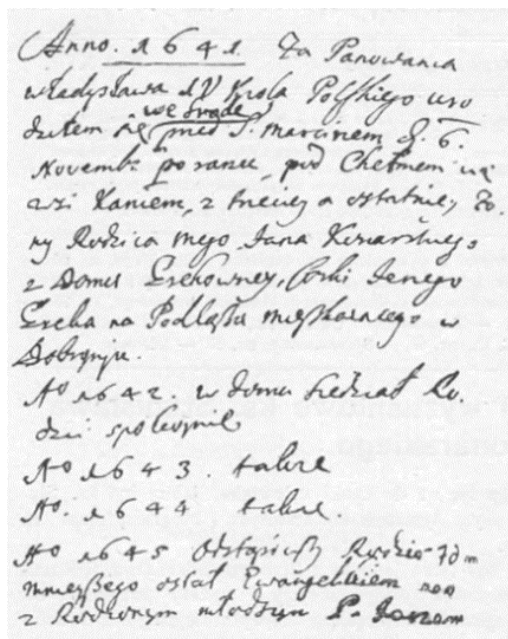 Anno. 1641. Za Panowania
władysława IV Krola Polskiego uro
we środę
dziłem się przed S. marcinem d. 6.
Novembr po ranu, pod Chełmem we
wsi Kaniem, z trzeciey a ostatniey Żo.
ny Rodzica mego Jana
z Domu Grekowney, Corki Jenego
Greka na Podlaszu mięszkaiącego w
Dobryniu.
Aº 1642. w domu siedział Ro.
dzic spokoynie
Aº 1643. takze
Aº. 1644 takze.
Aº 1645 Odstąpiwszy
mnieyszego ostał Ewangelikiem
z Rodzonym młodszym P. Janem